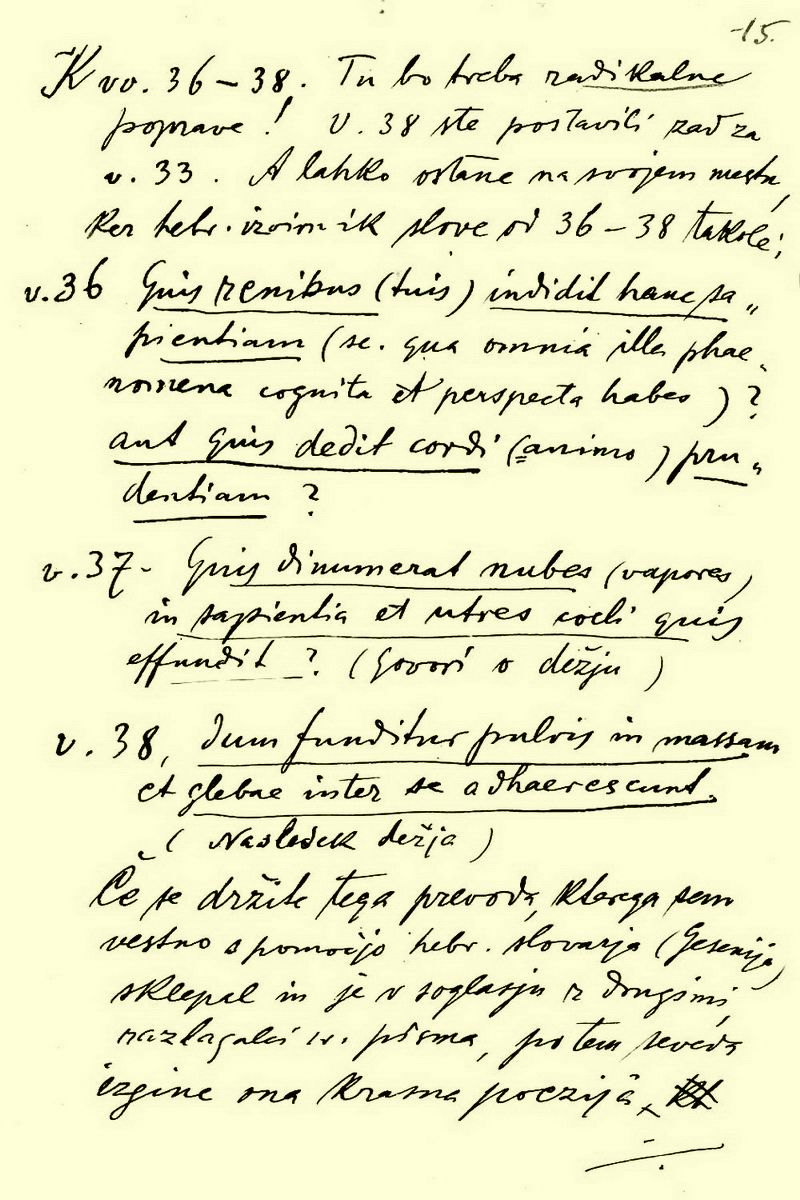 -15.
K vv. 36–38. Tu bo treba radikalne
poprave! V. 38 ste postavili zad za
v. 33. A lahko ostane na svojem mestu,
ker hebr. izvirnik slove od 36–38 takole:
v. 36 Quis renibus (tuis) indidit hanc sa„
pientiam (sc. qua omnia illa phae„
nomena cognita et perspecta habes)?
aut quis dedit cordi (=animo) pru„
dentiam?
v. 37- Quis dinumerat nubes (vapores)
in sapientia et utres coeli quis
effundit? (Govori o dežju)
v. 38, dum funditur pulvis in massam
et glebae inter se adhaerescunt.
(Nasledek dežja)
Če se držite tega prevoda, kterega sem
vestno s pomočjo hebr. slovarja (Gesenija)
sklepal in je v soglasju z drugimi
razlagalci sv. pisma, potem seveda
izgine ona krasna poezija,